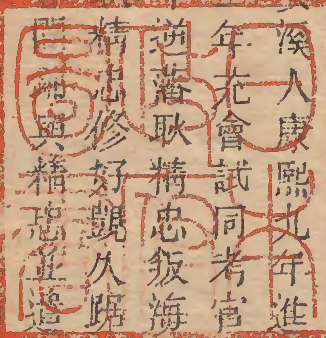 溪人康熙九年進
年充會試同考官
逆藩耿精忠叛海
精忠修好覬久踞
與精忠並遣